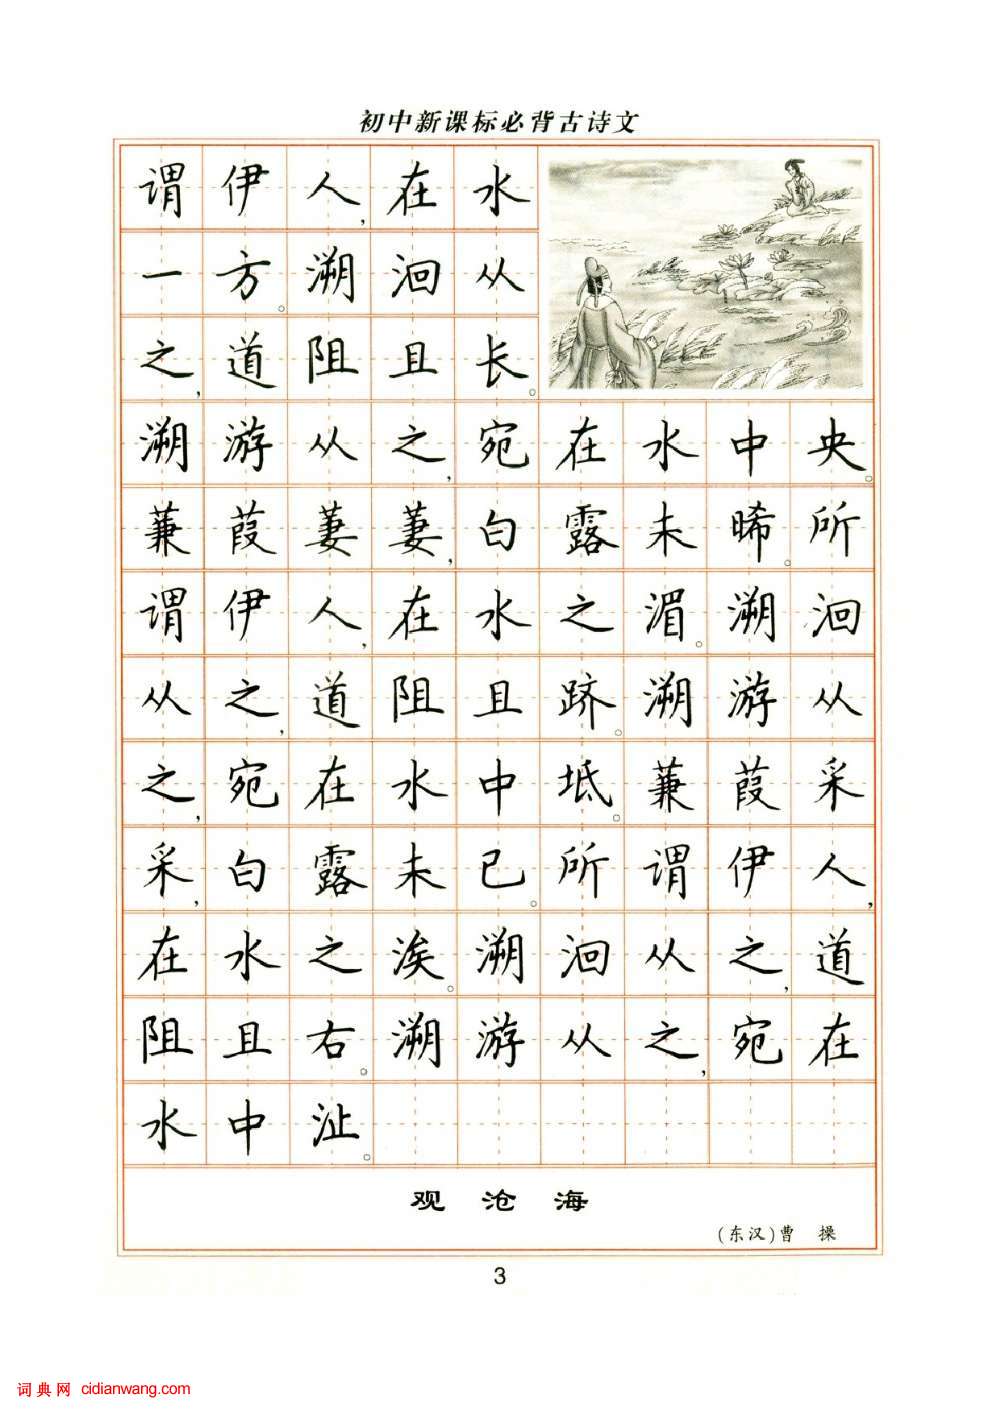 初中新课标必背古诗文
谓伊人,在水
一方。溯洄从
之,道阻且长。
溯游从之,宛在水中央。
蒹葭萋萋,白露未晞。所
谓伊人,在水之湄。溯洄
从之,道阻且跻。溯游从
之,宛在水中坻。蒹葭采
采,白露未已。所谓伊人,
在水之涘。溯洄从之,道
阻且右。溯游从之,宛在
水中沚。
观沧海
(东汉)曹操
3
词典网 cidianwang.com